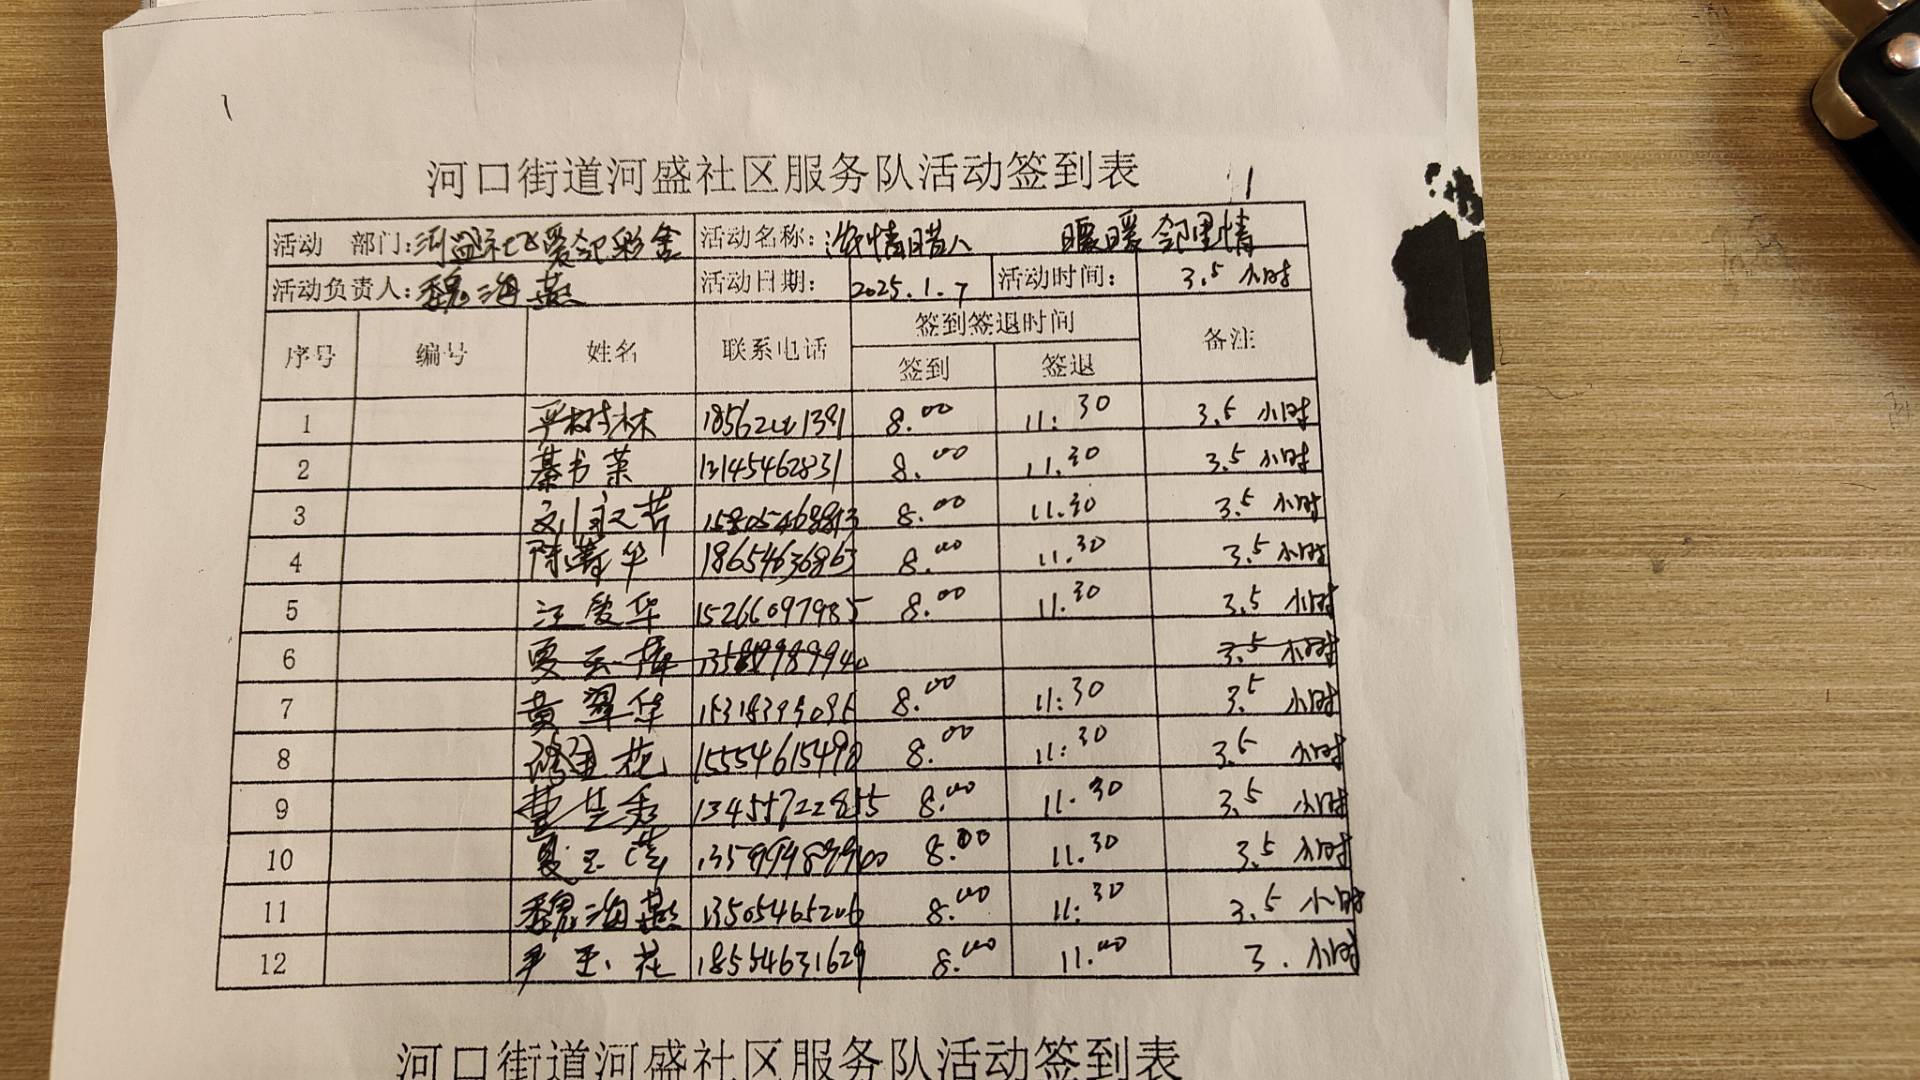 河口街道河盛社区服务队活动签到表
1
活动 部门:河盛社区爱心彩舍 活动名称:浓情腊八 暖暖邻里情
活动负责人:魏海燕 活动日期: 2025.1.7 活动时间: 3.5小时
序号 编号 姓名 联系电话 签到签退时间 备注
签到 签退
1 平树林 8.00 11:30 3.5小时
2 綦书荣 13145462831 8.00 11.30 3.5小时
3 15805468813 8.00 11.30 3.5小时
4 华 18654636863 8.00 11.30 3.5小时
5 汪爱华 15266097985 8.00 11.30 3.5小时
6 3.5小时
7 黄翠华 15318395095 8.00 11:30 3.5小时
8 花 15554615490 8.00 11:30 3.5小时
9 秀 13455722855 8.00 11.30 3.5小时
10 夏玉萍 8.00 11.30 3.5小时
11 魏海燕 13505465206 8.00 11:30 3.5小时
12 尹玉花 18554631629 8.00 11.00 3.小时
河口街道河盛社区服务队活动签到表